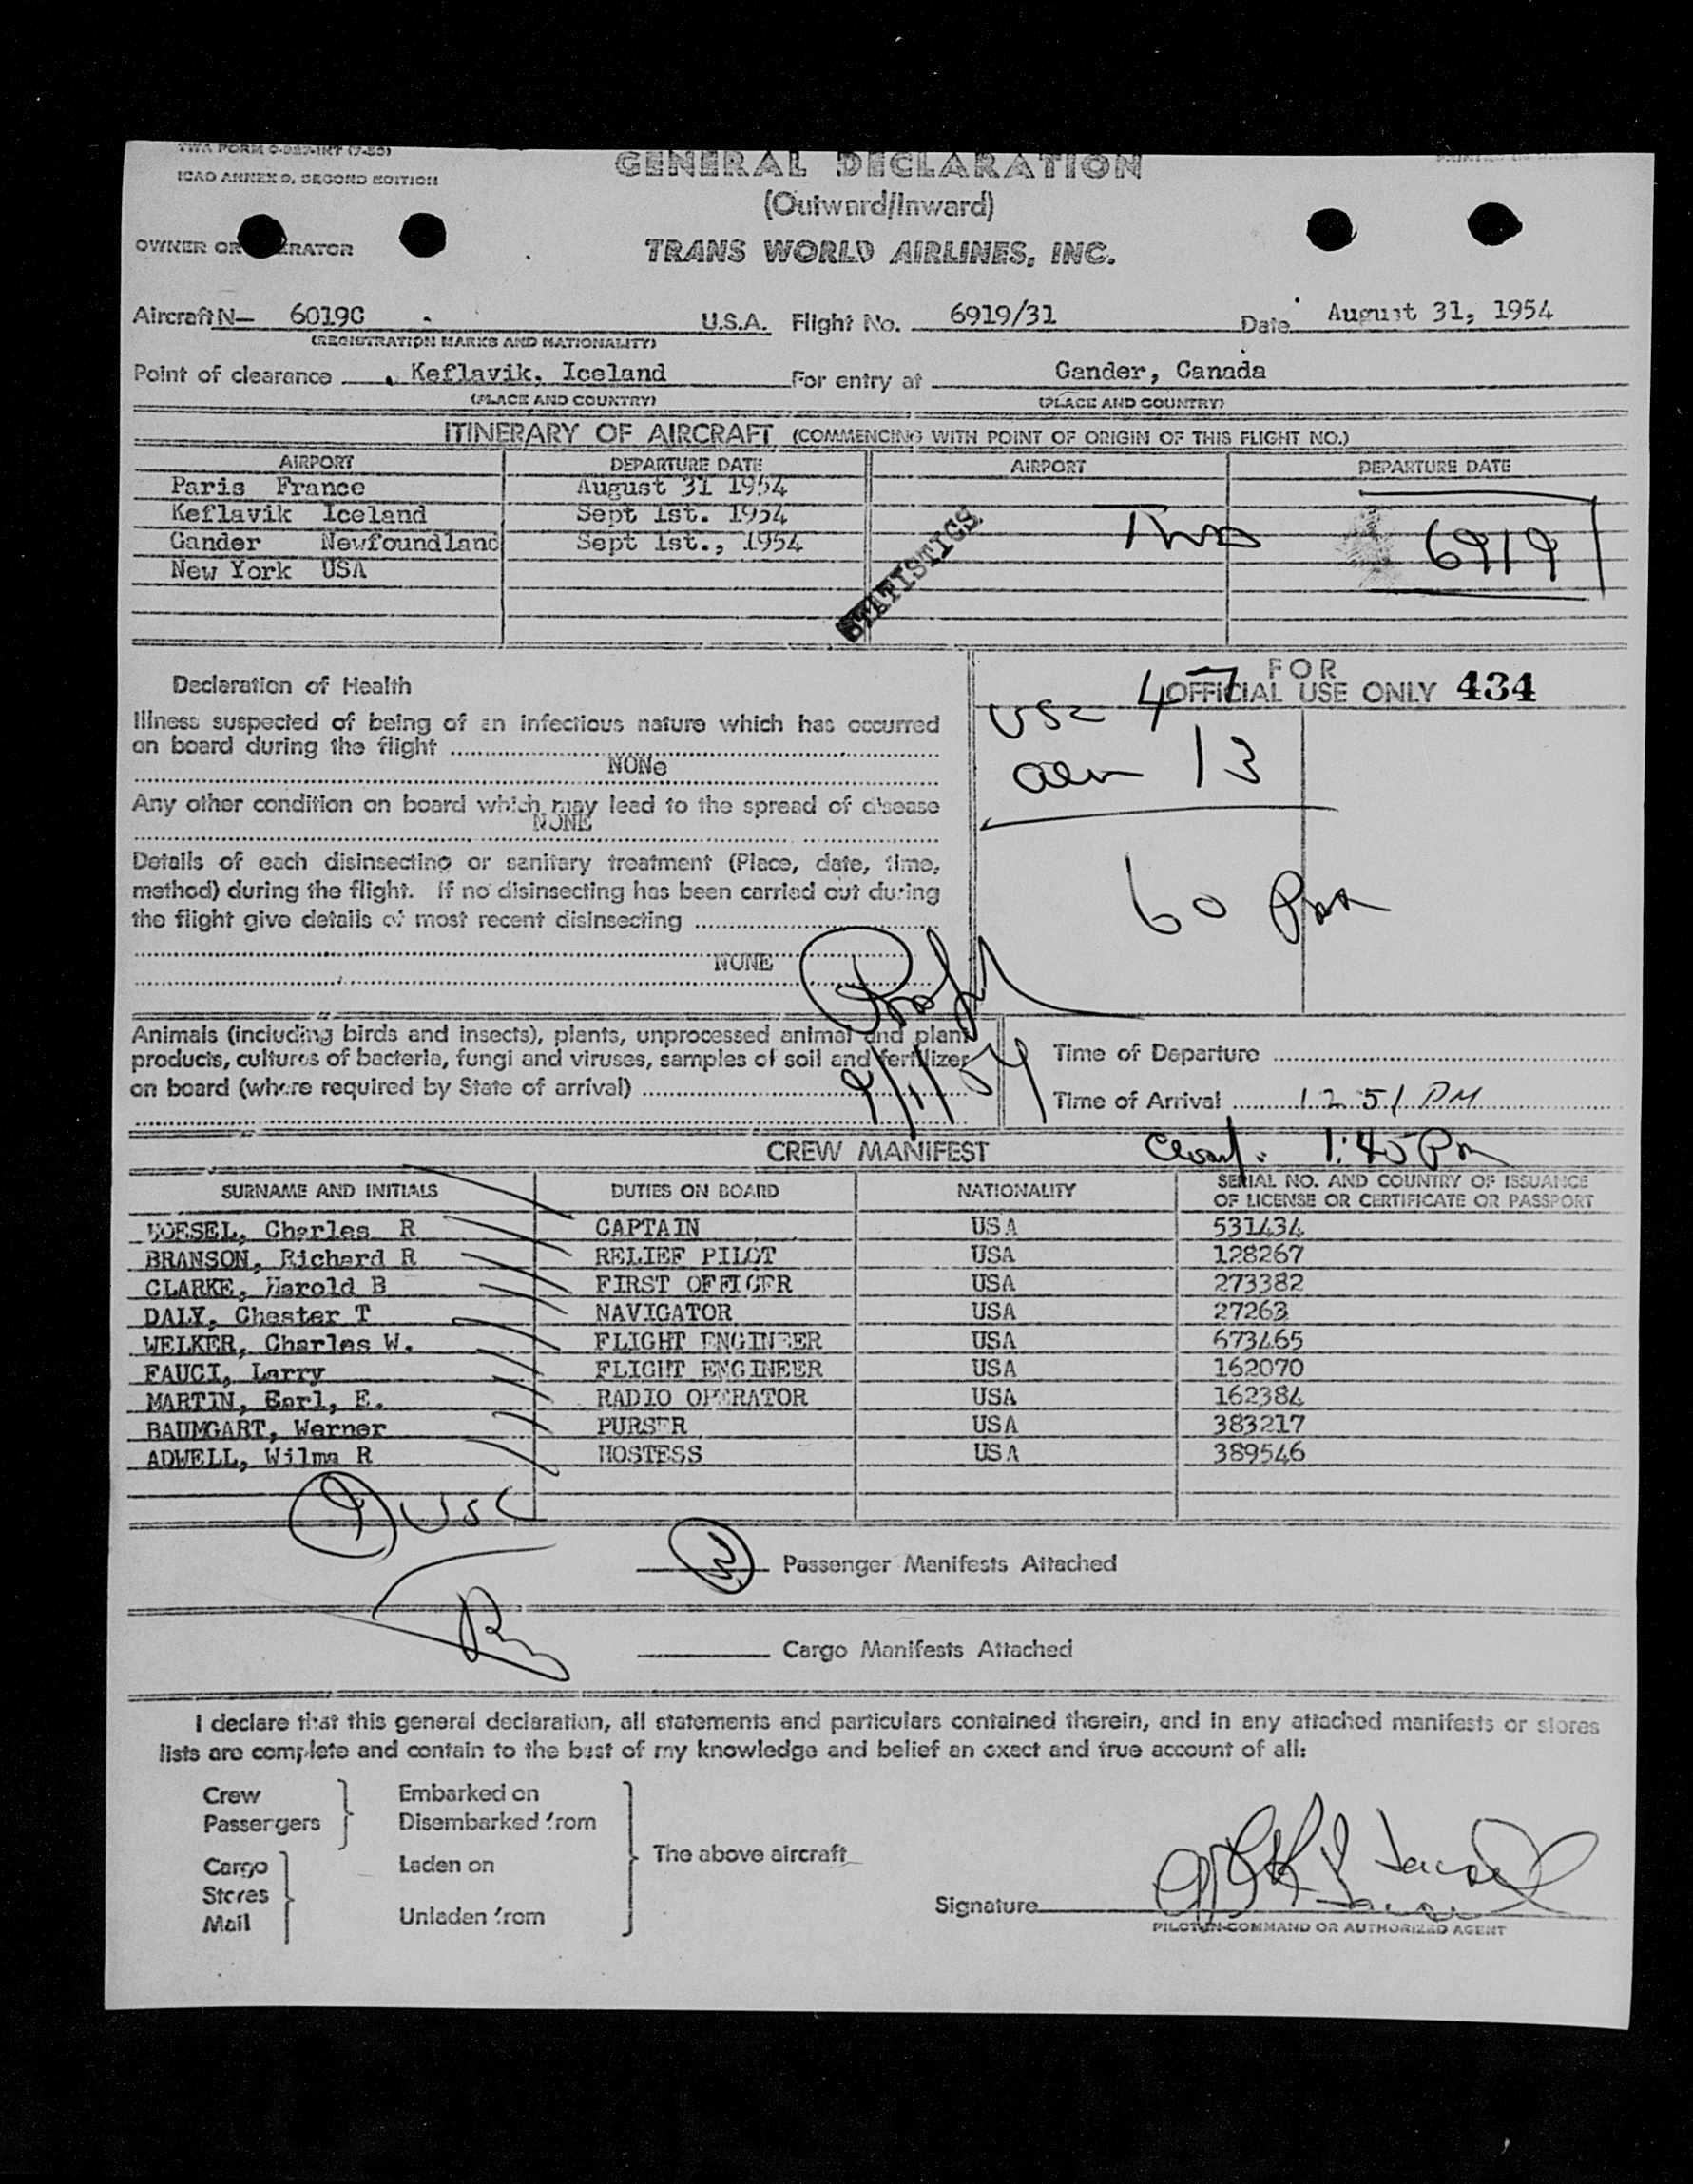 TWA FORM O-357-INT (7-53)
ICAO ANNEX 9, SECOND EDITION
GENERAL DECLARATION
(Outward/Inward)
OWNER OR ERATOR
TRANS WORLD AIRLINES, INC.
Aircraft N— 6019C U.S.A. Flight No. 6919/31 Date August 31, 1954
(REGISTRATION MARKS AND NATIONALITY)
Point of clearance Keflavik, Iceland For entry at Gander, Canada
(PLACE AND COUNTRY) (PLACE AND COUNTRY)
ITINERARY OF AIRCRAFT (COMMENCING WITH POINT OF ORIGIN OF THIS FLIGHT NO.)
AIRPORT DEPARTURE DATE AIRPORT DEPARTURE DATE
Paris France August 31 1954
Keflavik Iceland Sept 1st. 1954
Gander Newfoundland Sept 1st., 1954
New York USA
TWA 6919
STATISTICS
FOR
OFFICIAL USE ONLY 434
USC 47
13
60
Declaration of Health
Illness suspected of being of an infectious nature which has occurred
on board during the flight
NONe
Any other condition on board which may lead to the spread of disease
NONE
Details of each disinsecting or sanitary treatment (Place, date, time,
method) during the flight. If no disinsecting has been carried out during
the flight give details of most recent disinsecting
NONE
Animals (including birds and insects), plants, unprocessed animal and plant
products, cultures of bacteria, fungi and viruses, samples of soil and fertilizer
on board (where required by State of arrival)
9/1/54
Time of Departure
Time of Arrival 12 51 PM
1:45 Pm
CREW MANIFEST
SURNAME AND INITIALS DUTIES ON BOARD NATIONALITY SERIAL NO. AND COUNTRY OF ISSUANCE
OF LICENSE OR CERTIFICATE OR PASSPORT
Charles R CAPTAIN USA 531434
BRANSON, Richard R RELIEF PILOT USA 128267
CLARKE, Harold B FIRST OFFICER USA 273382
DALY, Chester T NAVIGATOR USA 27263
WELKER, Charles W. FLIGHT ENGINEER USA 673465
FAUCI, Larry FLIGHT ENGINEER USA 162070
MARTIN, Earl, E. RADIO OPERATOR USA 162384
BAUMGART, Werner PURSER USA 383217
ADWELL, Wilma R HOSTESS USA 389546
9 USC
3 Passenger Manifests Attached
Cargo Manifests Attached
I declare that this general declaration, all statements and particulars contained therein, and in any attached manifests or stores
lists are complete and contain to the best of my knowledge and belief an exact and true account of all:
Crew Embarked on
Passengers Disembarked from
The above aircraft
Cargo Laden on
Stores
Mail Unladen from
Signature
PILOT-IN-COMMAND OR AUTHORIZED AGENT